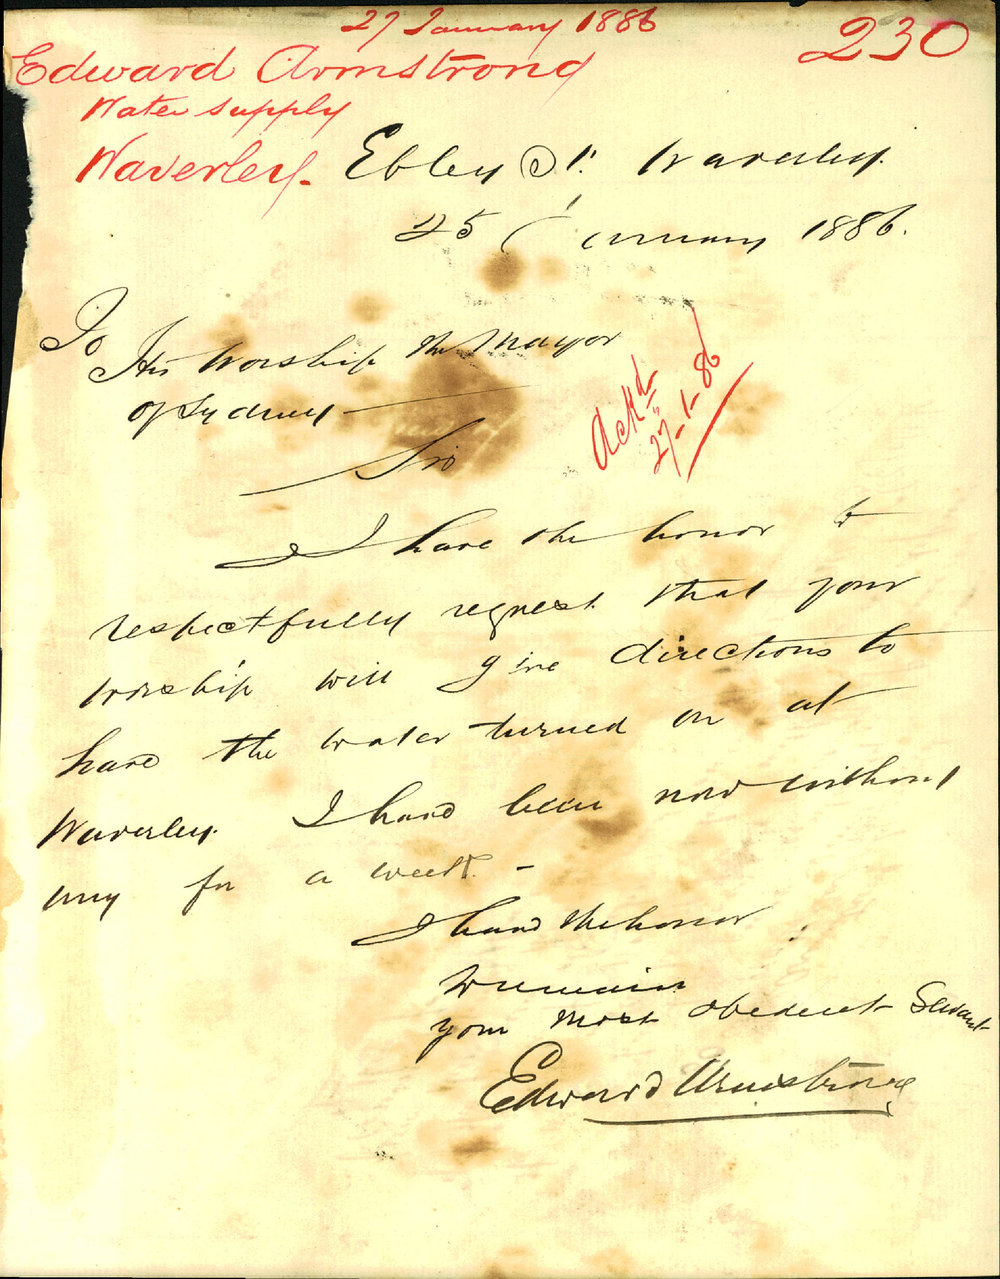 27 January 1886
230
Edward Armstrong
Water supply
Waverley.
Ebley St. Waverley.
25 January 1886.
To
His Worship the Mayor
of Sydney
Ackd
27-1-86
Sir
I have the honor to
respectfully request that your
worship will give directions to
have the water turned on at
Waverley. I have been now without
any for a week. -
I have the honor
to remain
your most obedient Servant
Edward Armstrong